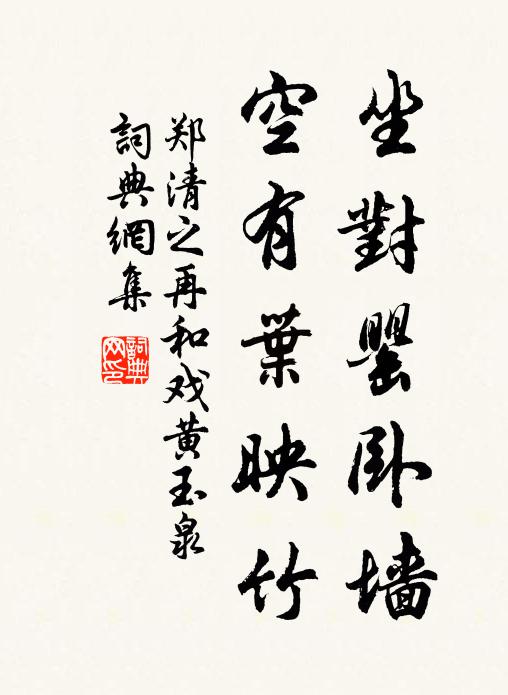 坐對罌卧墙
空有葉映竹
郑清之再和戏黄玉泉
詞典網集
詞典网印